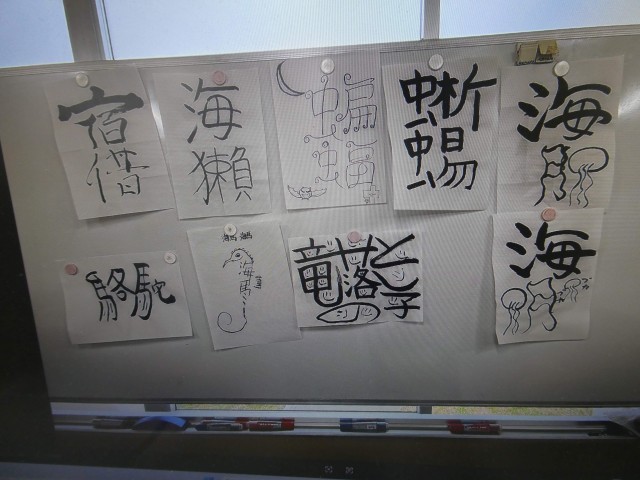 宿借
海獺
蝙蝠
蜥蜴
海月
駱駝
海馬
竜の落とし子
海月